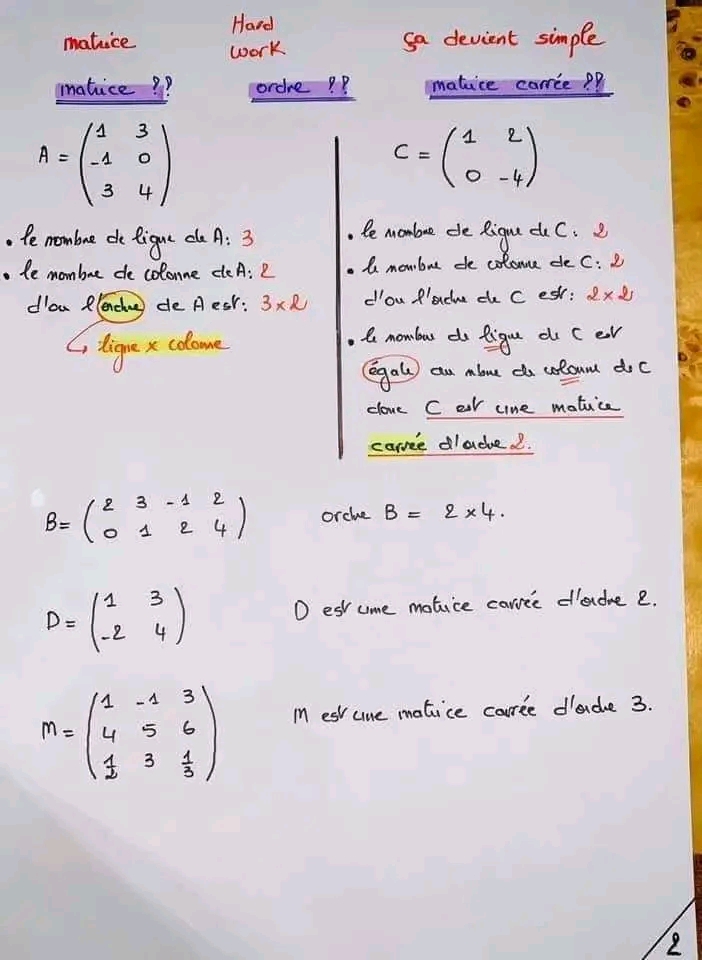 matrice Hard work ça devient simple
matrice ?? ordre ?? matrice carrée ??
A = ( 1 3
-1 0
3 4 )
• le nombre de ligne de A: 3
• le nombre de colonne de A: 2
d'ou l'ordre de A est: 3 x 2
↳ ligne x colonne
C = ( 1 2
0 -4 )
• le nombre de ligne de C: 2
• le nombre de colonne de C: 2
d'ou l'ordre de C est: 2 x 2
• le nombre de ligne de C est
égale au nbre de colonne de C
donc C est une matrice
carrée d'ordre 2.
B = ( 2 3 -1 2
0 1 2 4 )
ordre B = 2 x 4.
D = ( 1 3
-2 4 )
D est une matrice carrée d'ordre 2.
M = ( 1 -1 3
4 5 6
1/2 3 1/3 )
M est une matrice carrée d'ordre 3.
2